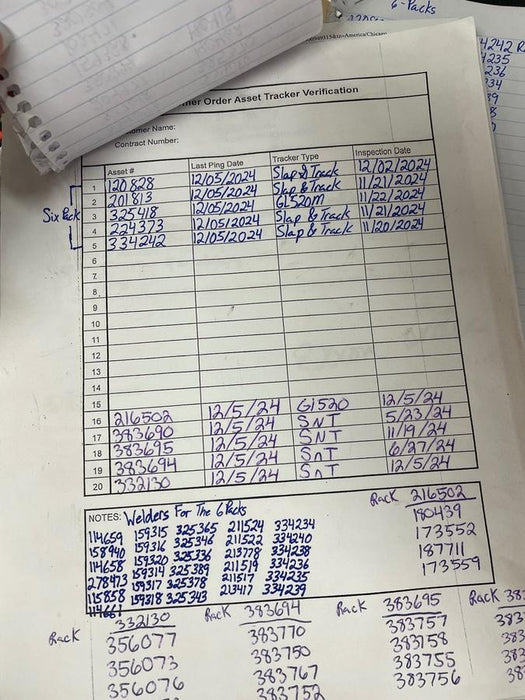 6-Packs
4242 R
4235
236
234
mer Order Asset Tracker Verification
omer Name:
Contract Number:
Asset # Last Ping Date Tracker Type Inspection Date
Six Pack
1 120828 12/05/2024 Slap & Track 12/02/2024
2 201813 12/05/2024 Slap & Track 11/21/2024
3 325418 12/05/2024 GL520M 11/22/2024
4 224373 12/05/2024 Slap & Track 11/21/2024
5 334242 12/05/2024 Slap & Track 11/20/2024
6
7
8
9
10
11
12
13
14
15
16 216502 12/5/24 Gl520 12/5/24
17 383690 12/5/24 SNT 5/23/24
18 383695 12/5/24 SNT 11/19/24
19 383694 12/5/24 SnT 6/27/24
20 332130 12/5/24 SnT 12/5/24
NOTES: Welders For The 6 Packs
114659 159315 325365 211524 334234
158940 159316 325346 211522 334240
114658 159320 325336 213778 334238
278473 159314 325389 211519 334236
115858 159317 325378 211517 334235
114661 159318 325343 213417 334239
Rack 216502
180439
173552
187711
173559
Rack 332130
356077
356073
356076
Rack 383694
383770
383750
383767
383752
Rack 383695
383757
383758
383755
383756
Rack 383
383
383
383